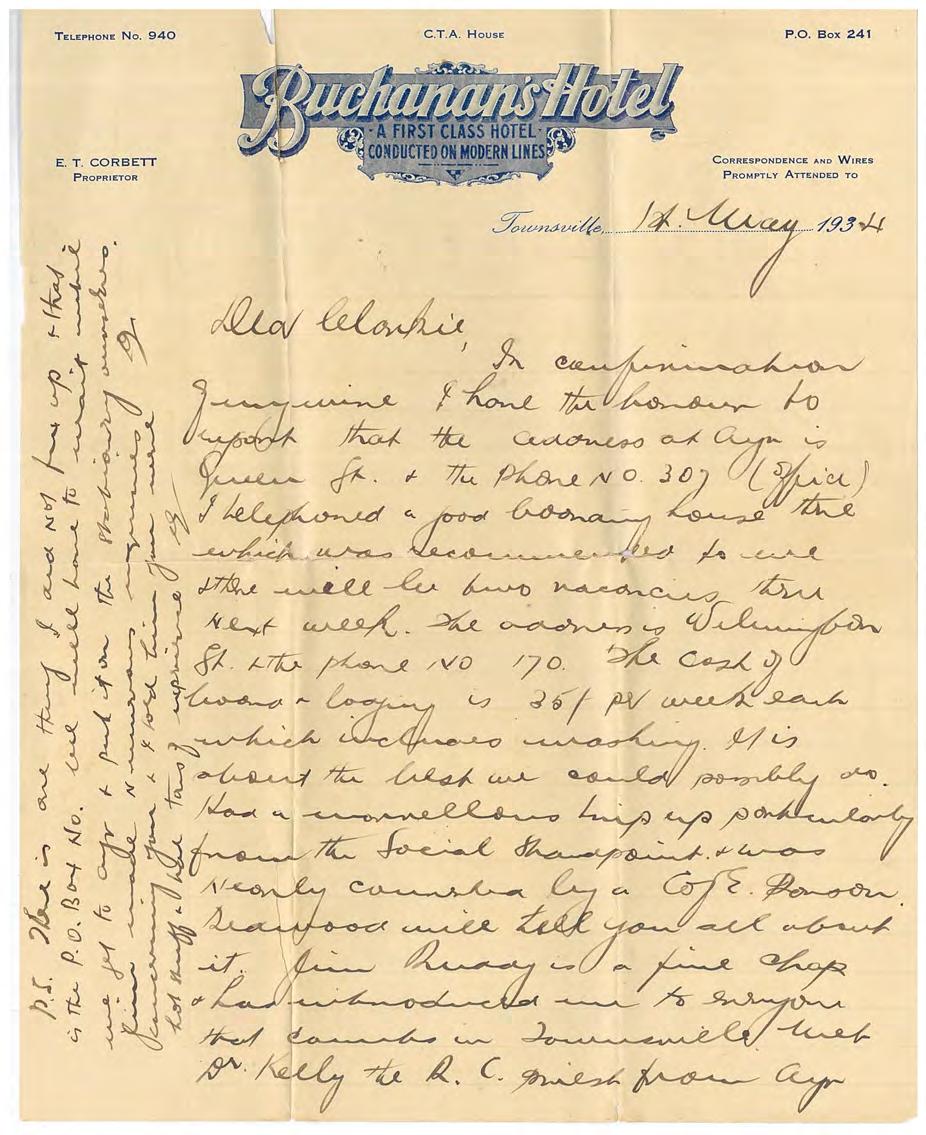 TELEPHONE NO. 940
C.T.A. HOUSE
P.O. BOX 241
Buchanan's Hotel
A FIRST CLASS HOTEL
CONDUCTED ON MODERN LINES
E. T. CORBETT
PROPRIETOR
CORRESPONDENCE AND WIRES
PROMPTLY ATTENDED TO
Townsville, 1st. May 1934
Dear
In confirmation
I have the honour to
report that the address at Ayr is
Queen St. & the Phone NO. 307 (Office)
I telephoned a good boarding house there
which was recommended to me
& there will be two vacancies there
next week. The address is Wilmington
St. & the phone NO 170. The cost of
board & loging is 35/ per week each
which includes washing. It is
about the best we could possibly do.
Had a marvellous trip up particularly
from the Social Standpoint. & was
nearly by a C of E. Parson.
will tell you all about
it. Jim is a fine chap
& has introduced me to everyone
that counts in Townsville. Met
Dr. Kelly the R. C. priest from Ayr
P.S. There is one thing I did not fix up & that
is the P.O. Box No. We will have to wait until
we get to Ayr & put it on the stationary ourselves.
Jim made numerous enquiries
concerning you & I told him you were
hot stuff &